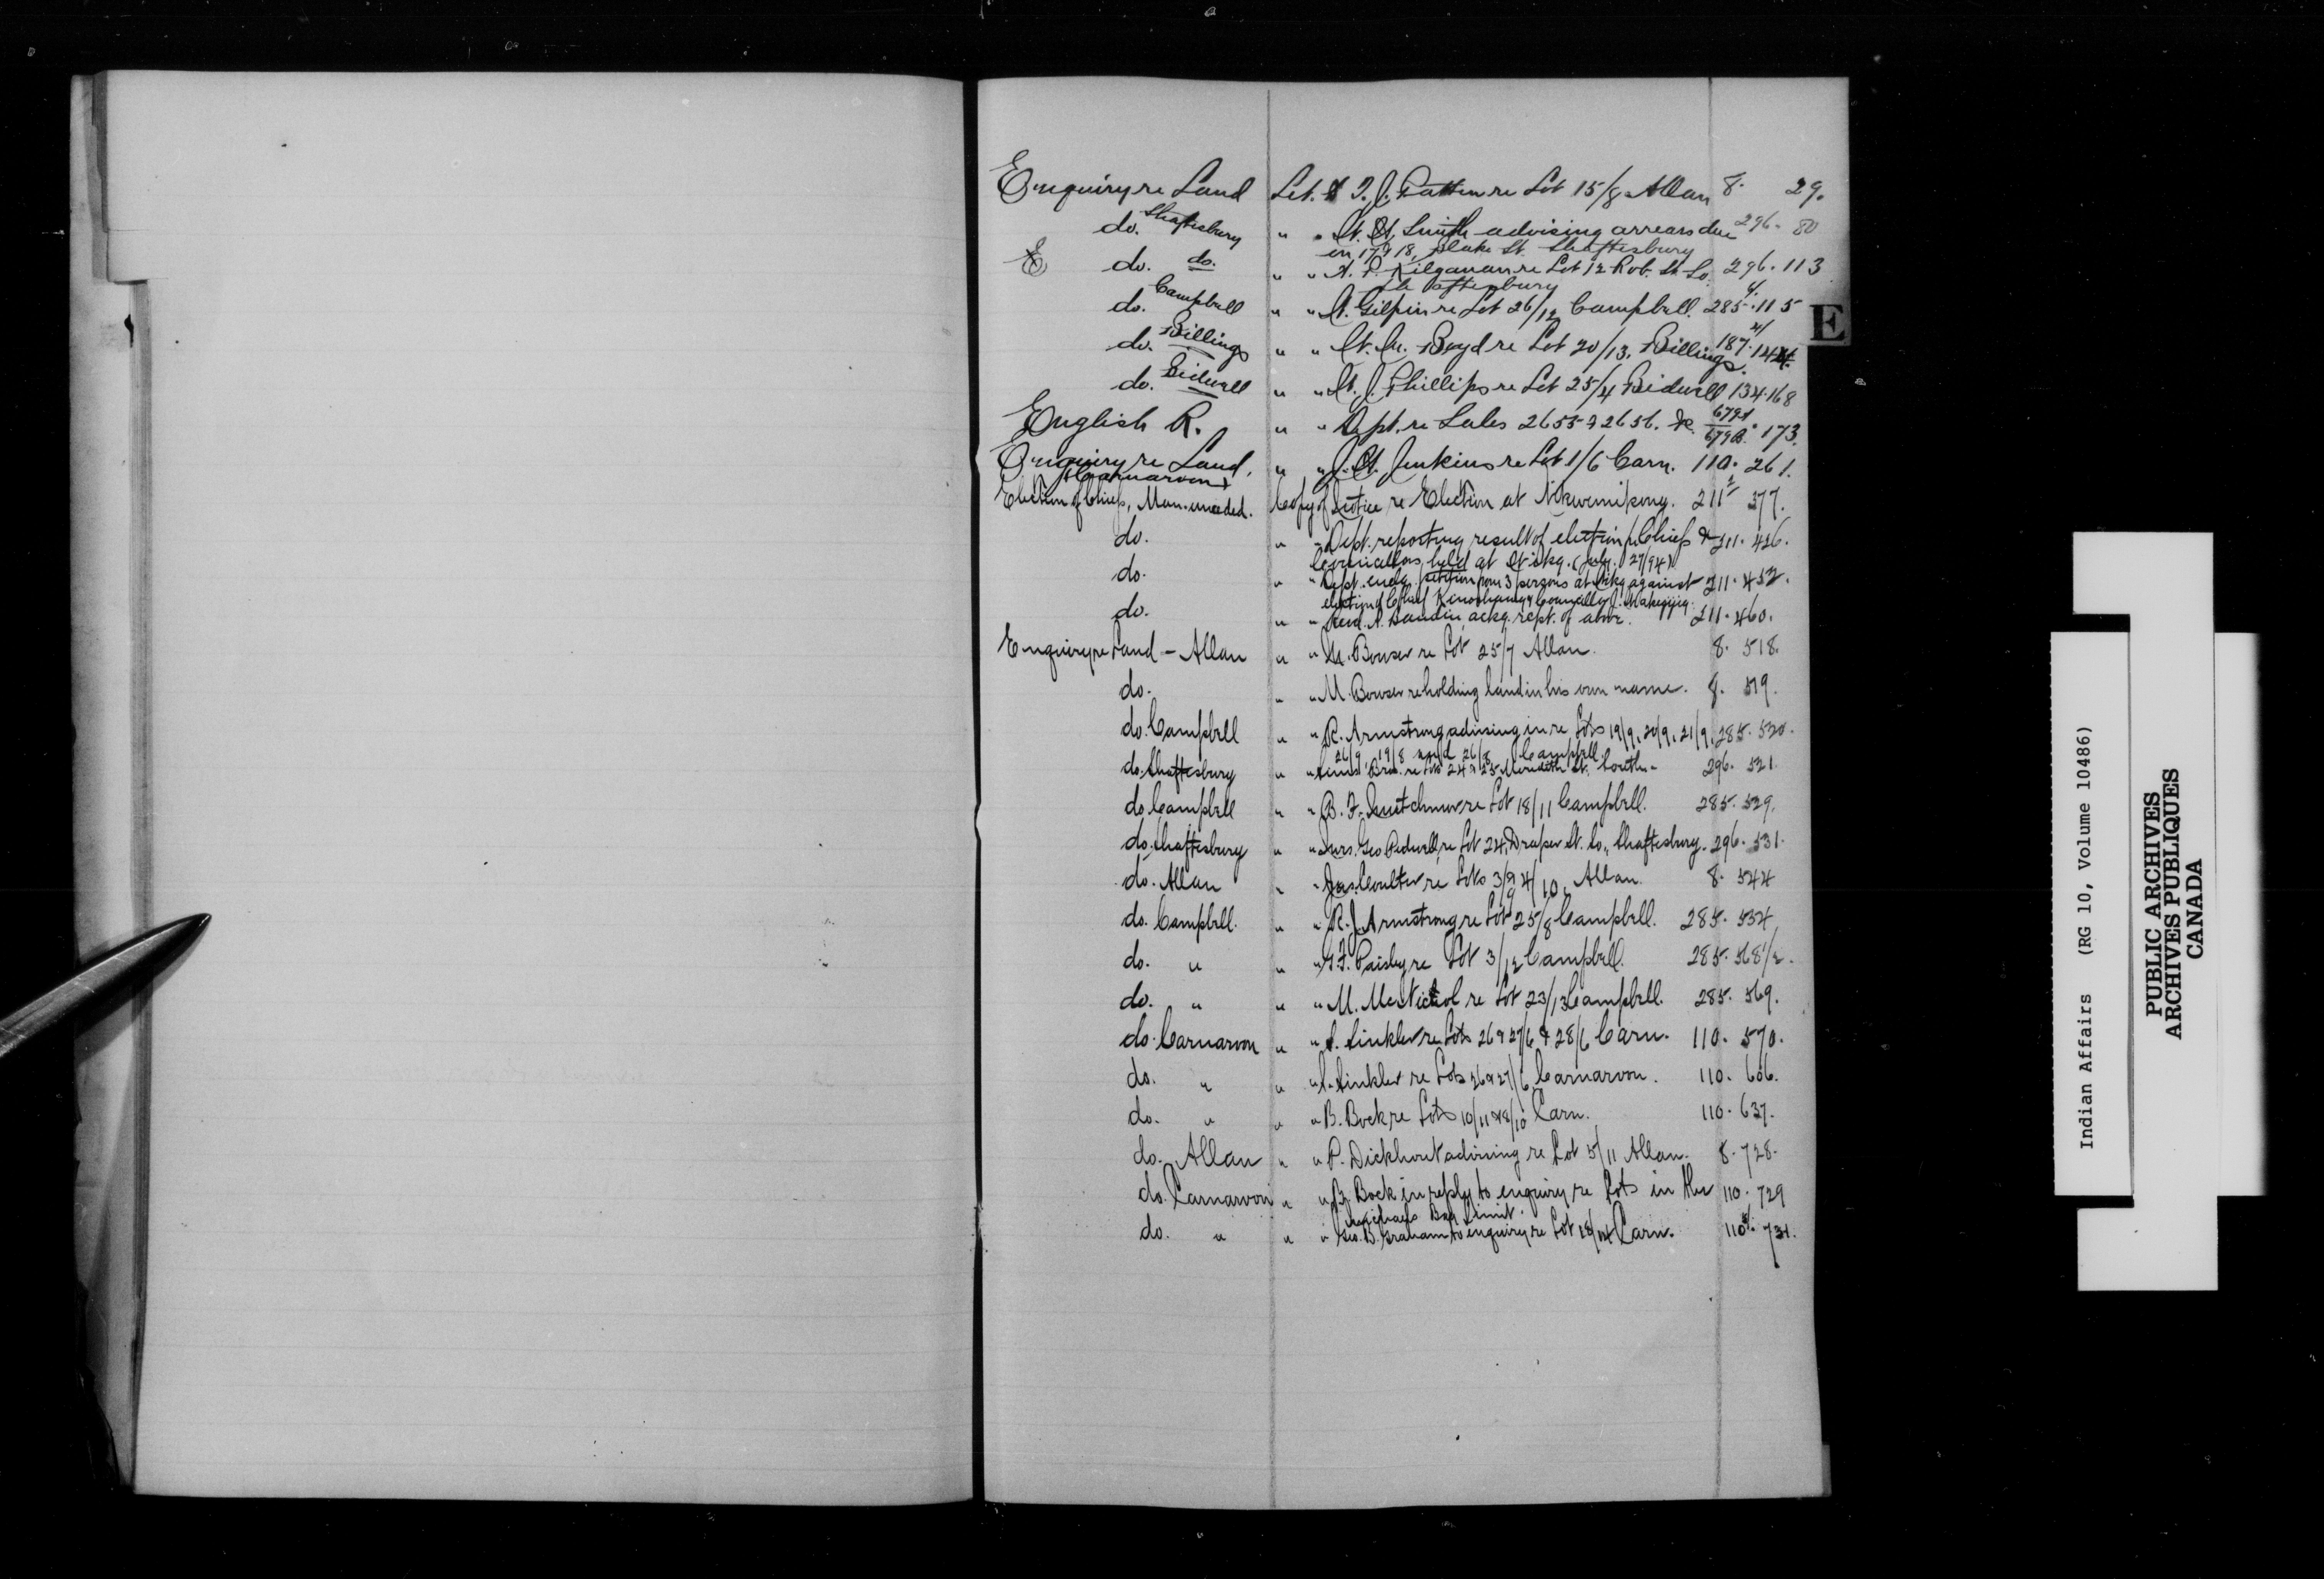 Enquiry re Land Let. to T. J. Patten re Lot 15/8 Allan 8. 29.
do. Shaftesbury " " Smith advising arrears due 296. 80
on 17 & 18, Blake St. Shaftesbury
E do. do. " " A. P. Kilganan re Lot 12 Rob. St. So. 296. 113
Shaftesbury
do. Campbell " " Gilpin re Lot 26/12 Campbell. 285. 115
do. Billings " " Boyd re Lot 20/13, Billings. 187.
do. Bidwell " " J. Phillips re Lot 25/4 Bidwell 134. 168
English R. " " Dept. re Sales 2655 & 2656. &c. 173.
E
Enquiry re Land, " " Jenkins re Lot 1/6 Carn. 110. 261.
Carnarvon
Election of Chiefs, Man. unceded. Copy of Notice re Election at Wikwemikong. 211 377.
do. " " Dept. reporting result of election of Chiefs & 211. 426.
Councillors held at Wikg. (July 27/94)
do. " " Dept. encl. petition from 3 persons at Wikg against 211. 452.
election of Chief Councillor J.
do. " " Revd. ackg. rept. of above. 211. 460.
Enquiry re Land - Allan " " M. Bowser re Lot 25/7 Allan. 8. 518.
do. " " M. Bowser re holding land in his own name. 8. 519.
do. Campbell " " R. Armstrong advising in re Lots 19/9, 20/9, 21/9, 285. 520.
26/9, 19/8 and 26/8 Campbell.
do. Shaftesbury " " Bros. re Lots 24 & 25 Meredith St. South. 296. 521.
do. Campbell " " B. F. re Lot 18/11 Campbell. 285. 529.
do. Shaftesbury " " Mrs. Geo. Bidwell, re Lot 24, Draper St. So., Shaftesbury. 296. 531.
do. Allan " " Jas. Coulter re Lots 3/9 4/10, Allan. 8. 544
do. Campbell. " " R. J. Armstrong re Lot 25/8 Campbell. 285. 554
do. " " " Paisley re Lot 3/12 Campbell. 285. 568 1/2.
do. " " " M. McNichol re Lot 23/13 Campbell. 285. 569.
do. Carnarvon " " Sinkler re Lots 26 & 27/6 & 28/6 Carn. 110. 570.
do. " " " Sinkler re Lots 26 & 27/6, Carnarvon. 110. 606.
do. " " " B. Bock re Lots 10/11 & 8/10 Carn. 110. 637.
do. Allan " " P. Dickhout advising re Lot 5/11 Allan. 8. 728.
do. Carnarvon " " B. Bock in reply to enquiry re Lots in the 110. 729
Michaels Bay Limit.
do. " " " Geo. B. Graham to enquiry re Lot 18/14 Carn. 110. 731.
Indian Affairs (RG 10, Volume 10486)
PUBLIC ARCHIVES
ARCHIVES PUBLIQUES
CANADA